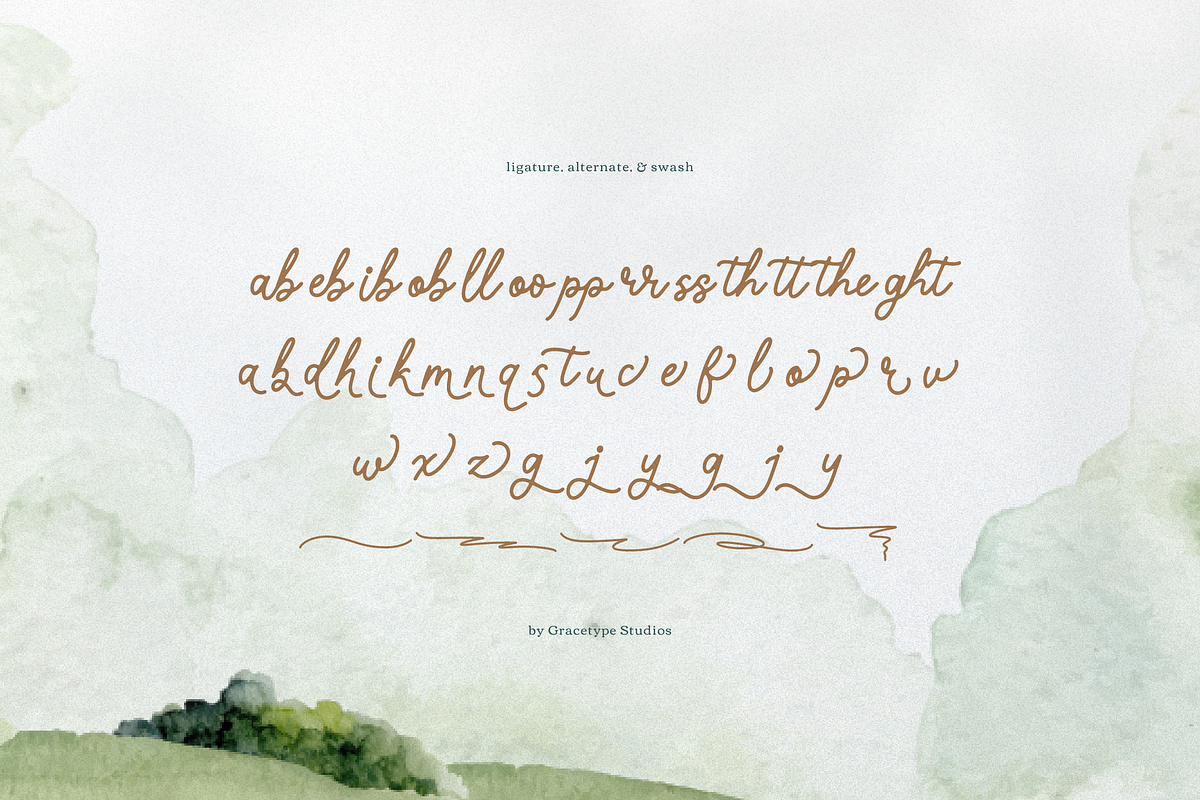 ligature, alternate, & swash
ab eb ib ob ll oo pp rr ss th tt the ght
a b d h i k m n q s t u c e f l o p r v
w x z g j y g j y
by Gracetype Studios